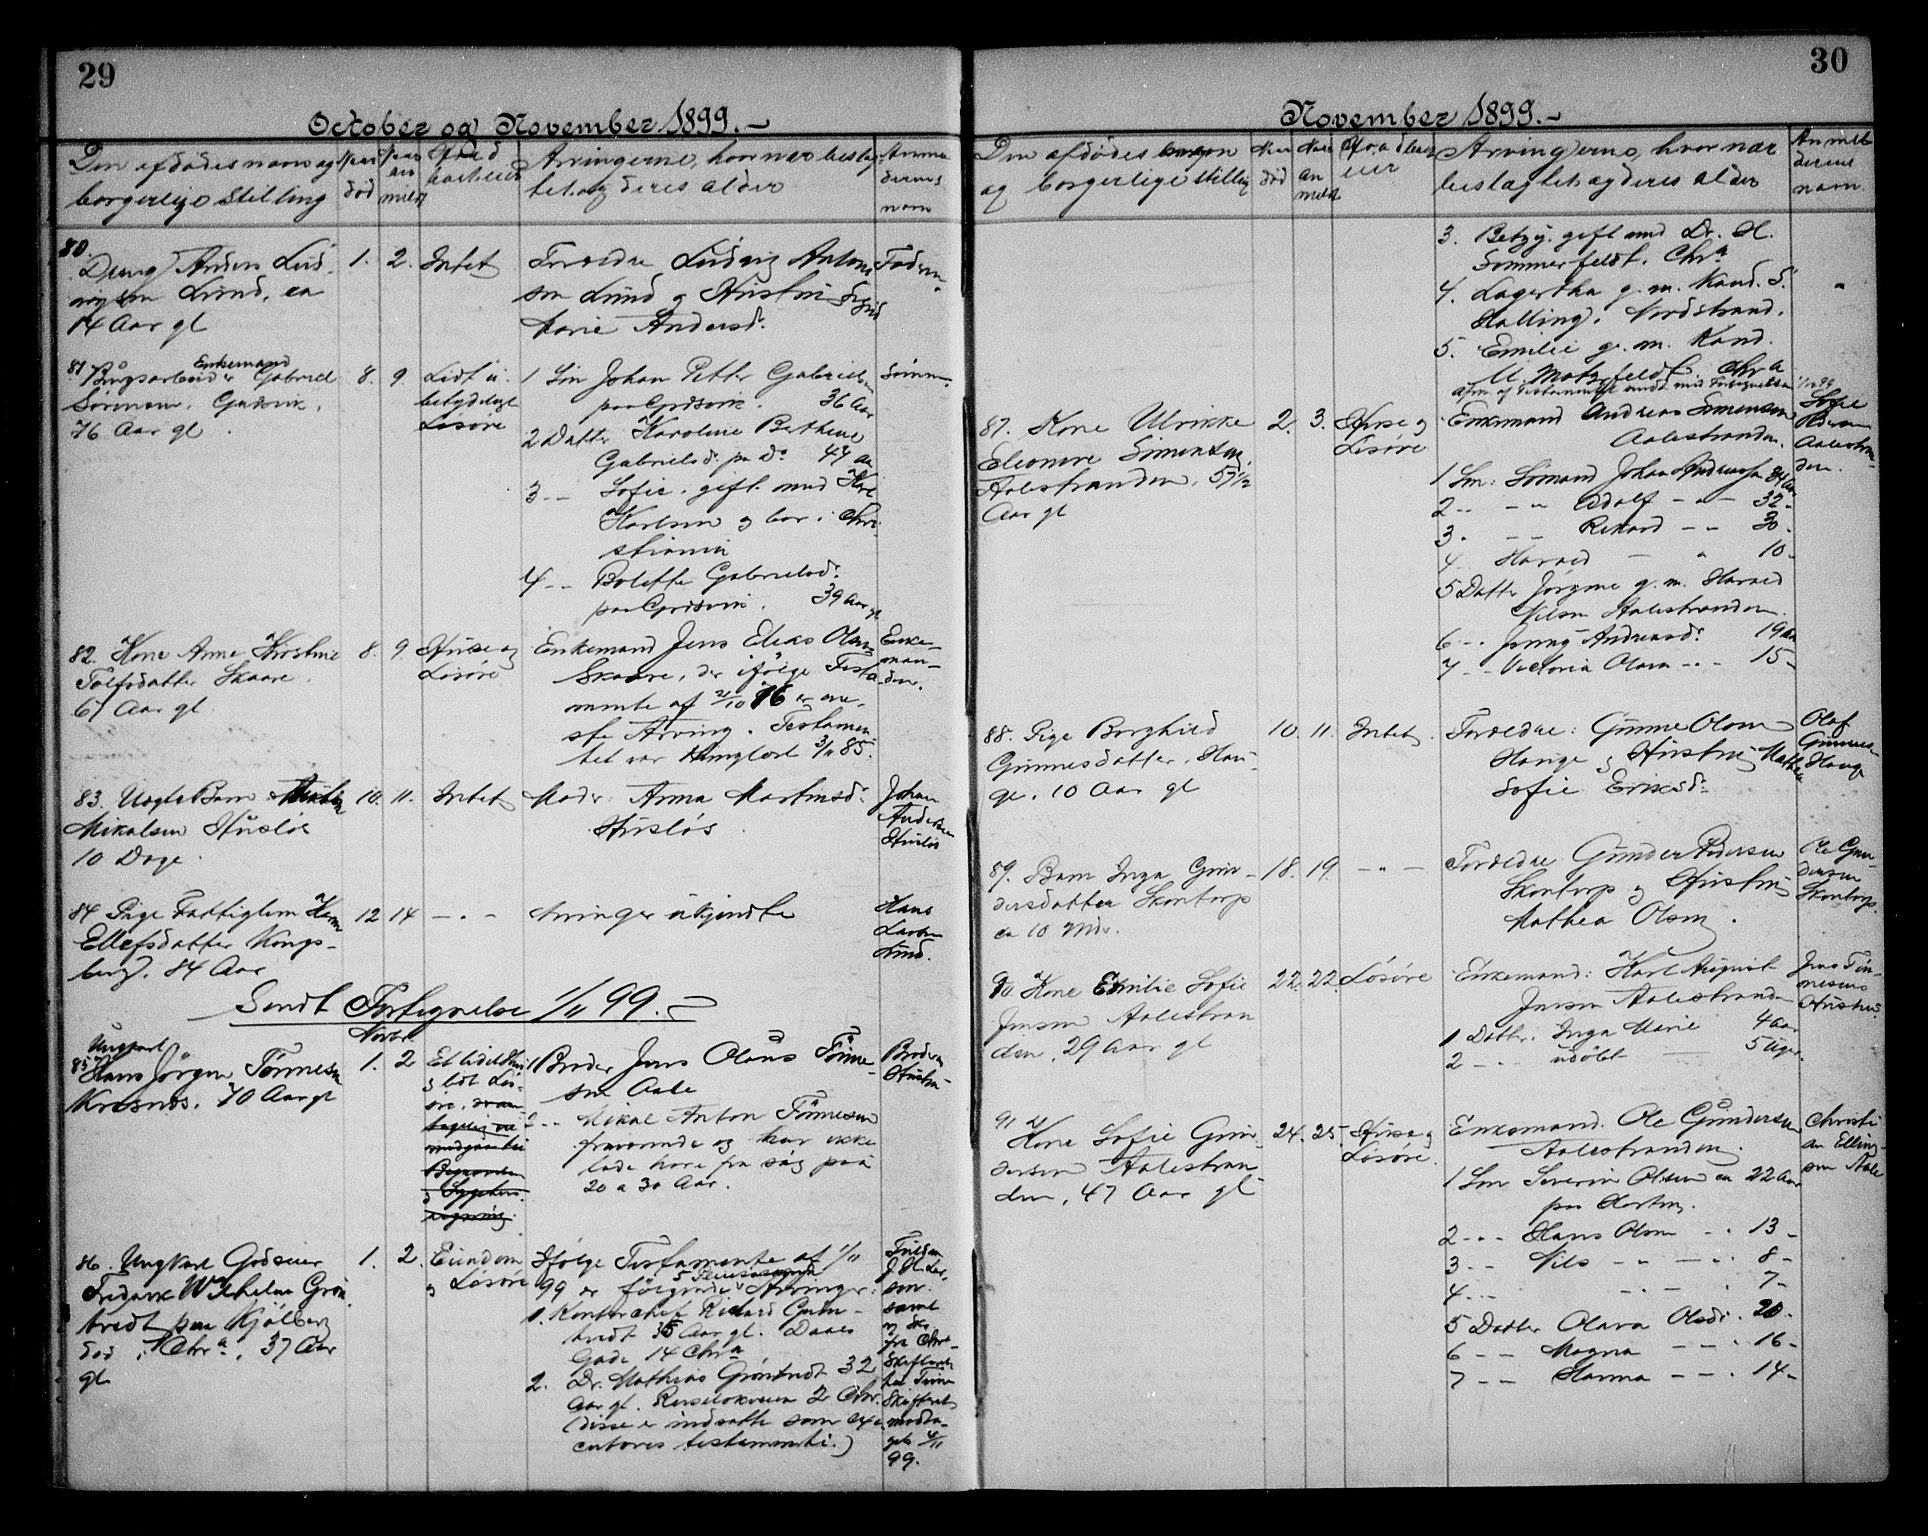 29
October og November 1899.-
Den afdødes navn og
borgerlige stilling
død
Arvingerne, hvor nær beslæg-
tet og deres alder
navn
80.
Dreng Anders Lud-
vigsen Lund, ca
14 Aar gl
1. 2. Intet
Forældre Ludvig Anton-
sen Lund og Hustru Sigrid
Marie Andersdr.
Faderen
81. Enkemand
Gabriel
Sørensen, Grøsvik,
76 Aar gl.
8. 9. Lidt u-
betydeligt
Løsøre
1 Søn Johan Petter Gabrielsen
paa Grøsvik. 36 Aar
2 Datter Karoline Bethine
Gabrielsdr. paa do 47 Aar
3 -- Sofie, gift med Karl
Karlsen og bor i Chri-
stiania
4 -- Bolette Gabrielsdr.
paa Grøsvik. 39 Aar gl
Sønnen
82. Kone Anne Kirstine
Tolfsdatter Skaare.
67 Aar gl.
8. 9. Huse og
Løsøre
Enkemand Jens Elias Olsen
Skaare, der ifølge Testa-
mente af 21/10 76 er ene-
ste Arving. Testamen-
tet var thinglæst 3/11 85.
Enke-
man-
den.
83. Uægte Barn
Mikalsen Husløs
10 Dage.
10. 11. Intet
Moder: Anna Martinsdr.
Husløs.
Johan
Andersen
Husløs
84 Pige Fattiglem Karen
Ellefsdatter Kongs-
berg. 84 Aar
12 14 -"-
Arvinger ukjendte
Hans
Larsen
Lund.
Sendt Fortegnelse 1/11 99.-
Novbr.
Ungkarl
85 Hans Jørgen Tønnesen
Krosnæs. 70 Aar gl
1. 2 Et lidet Hus
og lidt Løs-
øre,
1 Broder Jens Olaus Tønne-
sen Aale
2 -- Mikal Anton Tønnesen
fraværende og har ikke
lade høre fra sig paa
20 a 30 Aar.
Broderens
Hustru
86. Ungkarl Godseier
Fredrik Wilhelm Grøn-
tvedt paa Kjølberg
død i Chra. 37 Aar
gl
1. 2. Eiendom
og Løsøre
Ifølge Testamente af 1/11
99 er følgende 5 Arvinger:
1. Kontorchef Rikard Grøn-
tvedt 35 Aar gl. Daaes
Gade 14 Chra
2. Dr. Mathias Grøntvedt 32
Aar gl. 2 Chr.
(disse er indsatte som exe-
cutores testamenti.)
99.
30
November 1899.-
Den afdødes navn
og borgerlige stilling
Naar
død
Naar
an
meldt
Arvingerne, hvor nær
beslægtet og deres alder
Anmel
derens
navn
3. Betzy, gift med Dr. H.
Sommerfeldt, Chra
4. Lagertha g. m. Kand. S.
Halling, Nordstrand.
5. Emilie g. m. Kand.
U. Motzfeldt. Chra
87. Kone Ulrikke
Eleonore Simensen
Aalestranden, 57 1/2
Aar gl
2. 3. Huse og
Løsøre
Enkemand Andreas Simensen
Aalestranden.
1 Søn: Sømand Johan Andreassen 34 Aar
2 -- -- Adolf -- 32-
3 -- -- Rikard -- 30-
4 Harald - " 10-
5 Datter Jørgine g. m. Harald
Nilsen Aalestranden.
6 -- Jenny Andreasdr. 19 Aar
7 -- Victoria Olava -- 15-
Sofie
Aalestran-
den.
88. Pige Borghild
Gunnesdatter, Hau-
ge. 10 Aar gl
10. 11. Intet.
Forældre: Gunne Olsen
Hauge og Hustru Mathea
Sofie Eriksdr.
Olaf
Gunnesen
Hauge
89. Barn Inga Gun-
dersdatter Skontorp
ca 10 Mdr.
18. 19. -"-
Forældre Gunder Pedersen
Skontorp og Hustru
Mathea Olsen.
Ole Gun-
dersen
Skontorp.
90 Kone Emilie Sofie
Jensen Aalestran
den, 29 Aar gl
22. 22. Løsøre
Enkemand: Karl August
Jensen Aalestranden
1 Datter. Inga Marie 4 Aar
2 -- udøbt - 5 Uger.
Jens Tøn-
nesens
Hustru
91 Kone Sofie Gun-
dersen Aalestran
den, 47 Aar gl
24. 25. Huse og
Løsøre.
Enkemand Ole Gundersen
Aalestranden.
1 Søn Severin Olsen ca 22 Aar
paa Horten.
2 -- Hans Olsen -- 13-
3 -- Nils -- 8-
4 -- -- 7-
5 Datter Olava Olsdr. 20-
6 -- Magna -- 16-
7 -- Hanna -- 14-
Christi
an Elling-
sen Aale